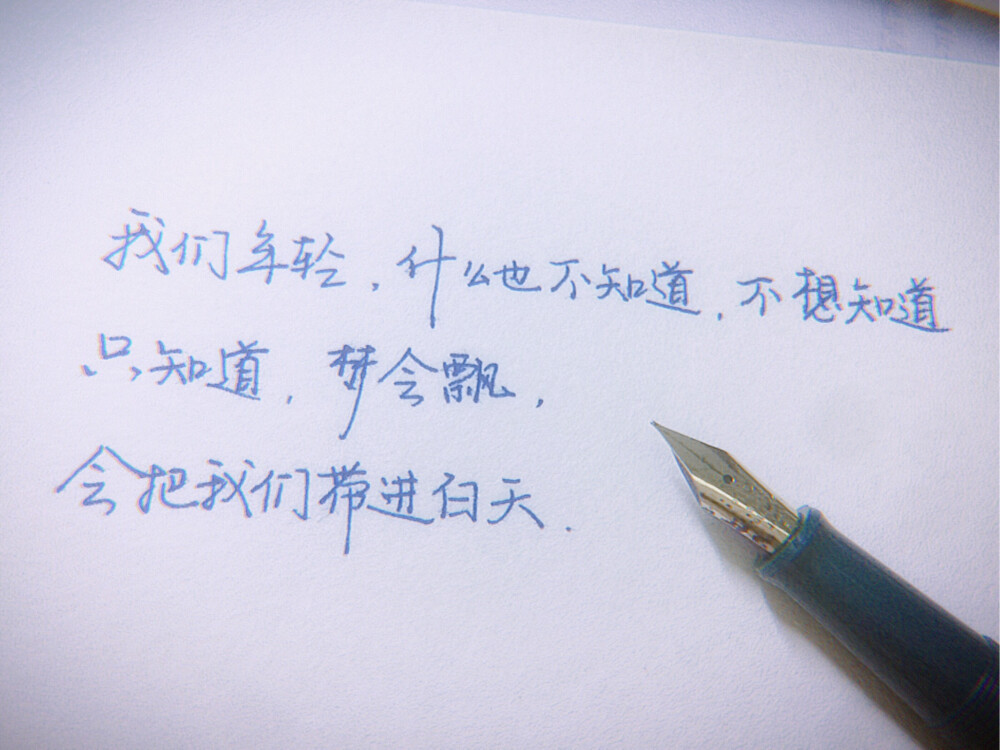 我们年轻,什么也不知道,不想知道
只知道,梦会飘,
会把我们带进白天.